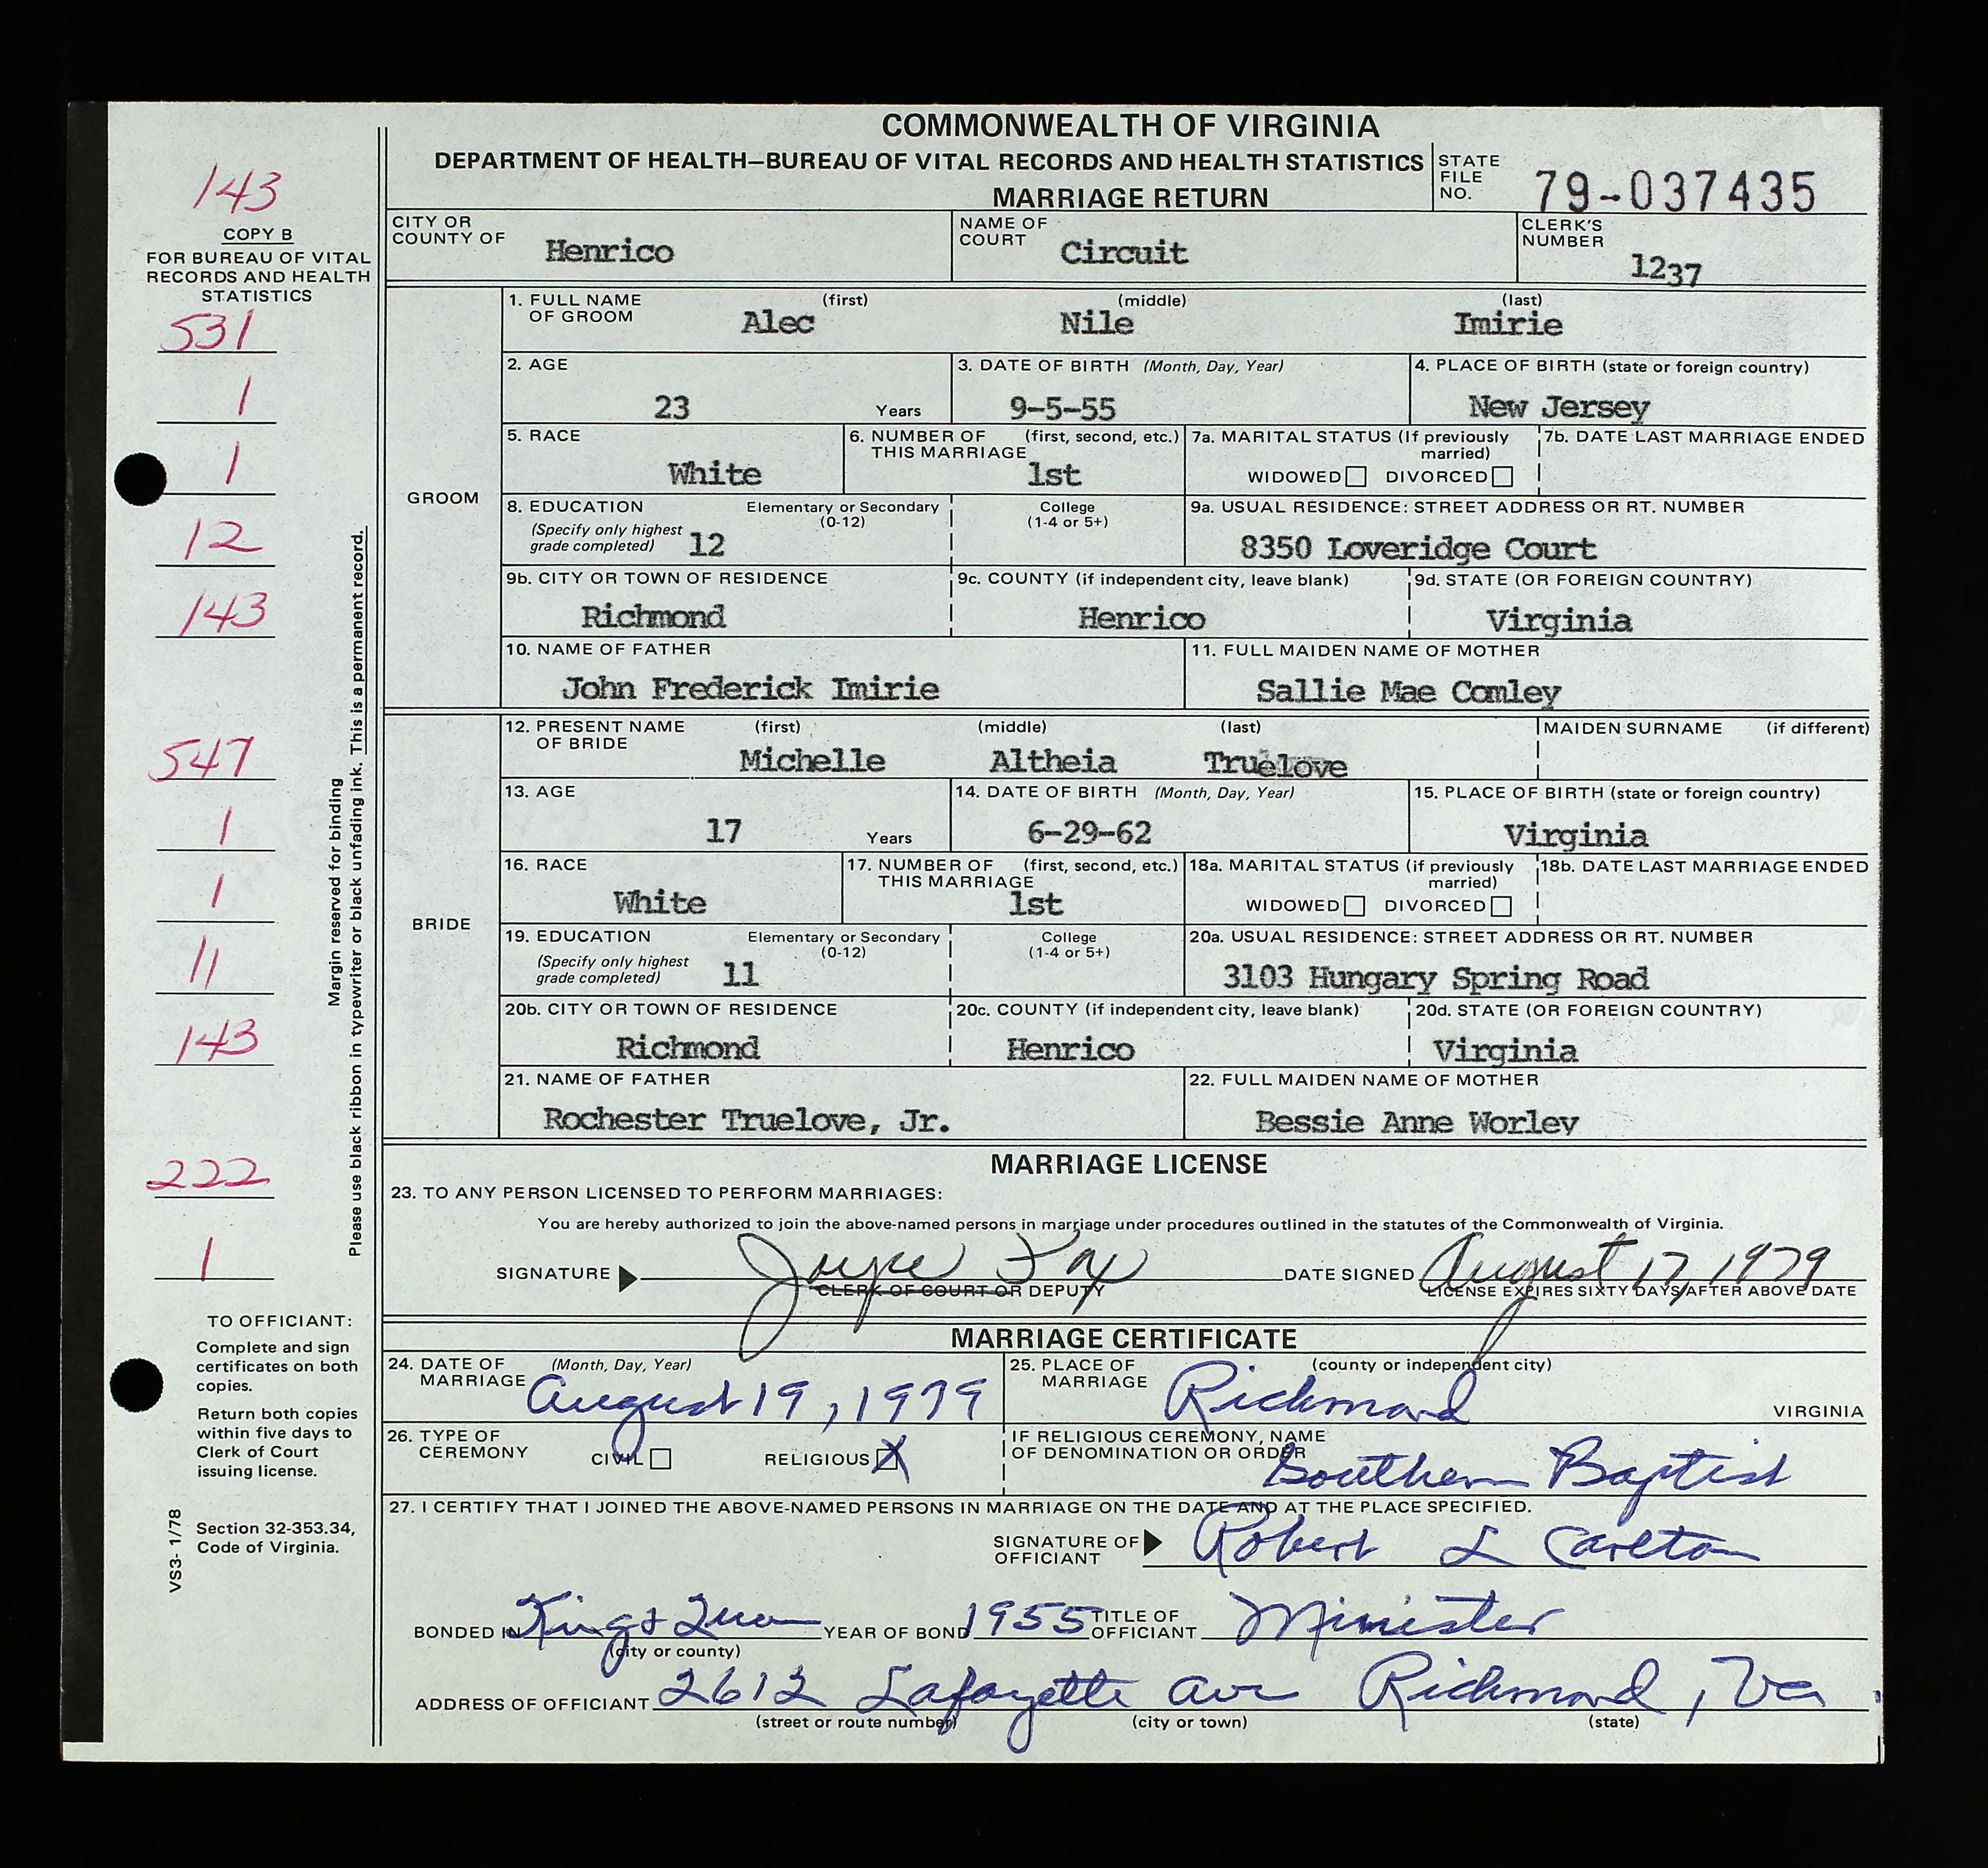 COMMONWEALTH OF VIRGINIA
DEPARTMENT OF HEALTH—BUREAU OF VITAL RECORDS AND HEALTH STATISTICS
MARRIAGE RETURN
STATE FILE NO. 79-037435
143
COPY B
FOR BUREAU OF VITAL
RECORDS AND HEALTH
STATISTICS
531
1
1
12
143
547
1
1
11
143
222
1
Margin reserved for binding
Please use black ribbon in typewriter or black unfading ink. This is a permanent record.
TO OFFICIANT:
Complete and sign
certificates on both
copies.
Return both copies
within five days to
Clerk of Court
issuing license.
Section 32-353.34,
Code of Virginia.
VS3- 1/78
CITY OR COUNTY OF Henrico
NAME OF COURT Circuit
CLERK'S NUMBER 1237
GROOM
1. FULL NAME OF GROOM (first) Alec (middle) Nile (last) Imirie
2. AGE 23 Years
3. DATE OF BIRTH (Month, Day, Year) 9-5-55
4. PLACE OF BIRTH (state or foreign country) New Jersey
5. RACE White
6. NUMBER OF THIS MARRIAGE (first, second, etc.) 1st
7a. MARITAL STATUS (If previously married) WIDOWED DIVORCED
7b. DATE LAST MARRIAGE ENDED
8. EDUCATION (Specify only highest grade completed) Elementary or Secondary (0-12) 12 College (1-4 or 5+)
9a. USUAL RESIDENCE: STREET ADDRESS OR RT. NUMBER 8350 Loveridge Court
9b. CITY OR TOWN OF RESIDENCE Richmond
9c. COUNTY (if independent city, leave blank) Henrico
9d. STATE (OR FOREIGN COUNTRY) Virginia
10. NAME OF FATHER John Frederick Imirie
11. FULL MAIDEN NAME OF MOTHER Sallie Mae Comley
BRIDE
12. PRESENT NAME OF BRIDE (first) Michelle (middle) Altheia (last) Truelove MAIDEN SURNAME (if different)
13. AGE 17 Years
14. DATE OF BIRTH (Month, Day, Year) 6-29-62
15. PLACE OF BIRTH (state or foreign country) Virginia
16. RACE White
17. NUMBER OF THIS MARRIAGE (first, second, etc.) 1st
18a. MARITAL STATUS (if previously married) WIDOWED DIVORCED
18b. DATE LAST MARRIAGE ENDED
19. EDUCATION (Specify only highest grade completed) Elementary or Secondary (0-12) 11 College (1-4 or 5+)
20a. USUAL RESIDENCE: STREET ADDRESS OR RT. NUMBER 3103 Hungary Spring Road
20b. CITY OR TOWN OF RESIDENCE Richmond
20c. COUNTY (if independent city, leave blank) Henrico
20d. STATE (OR FOREIGN COUNTRY) Virginia
21. NAME OF FATHER Rochester Truelove, Jr.
22. FULL MAIDEN NAME OF MOTHER Bessie Anne Worley
MARRIAGE LICENSE
23. TO ANY PERSON LICENSED TO PERFORM MARRIAGES:
You are hereby authorized to join the above-named persons in marriage under procedures outlined in the statutes of the Commonwealth of Virginia.
SIGNATURE Joyce Fox DATE SIGNED August 17, 1979
CLERK OF COURT OR DEPUTY LICENSE EXPIRES SIXTY DAYS AFTER ABOVE DATE
MARRIAGE CERTIFICATE
24. DATE OF MARRIAGE (Month, Day, Year) August 19, 1979
25. PLACE OF MARRIAGE (county or independent city) Richmond VIRGINIA
26. TYPE OF CEREMONY CIVIL RELIGIOUS X
IF RELIGIOUS CEREMONY, NAME OF DENOMINATION OR ORDER Southern Baptist
27. I CERTIFY THAT I JOINED THE ABOVE-NAMED PERSONS IN MARRIAGE ON THE DATE AND AT THE PLACE SPECIFIED.
SIGNATURE OF OFFICIANT Robert L Carlton
BONDED IN King & Queen (city or county) YEAR OF BOND 1955 TITLE OF OFFICIANT Minister
ADDRESS OF OFFICIANT 2612 Lafayette Ave Richmond, Va.
(street or route number) (city or town) (state)